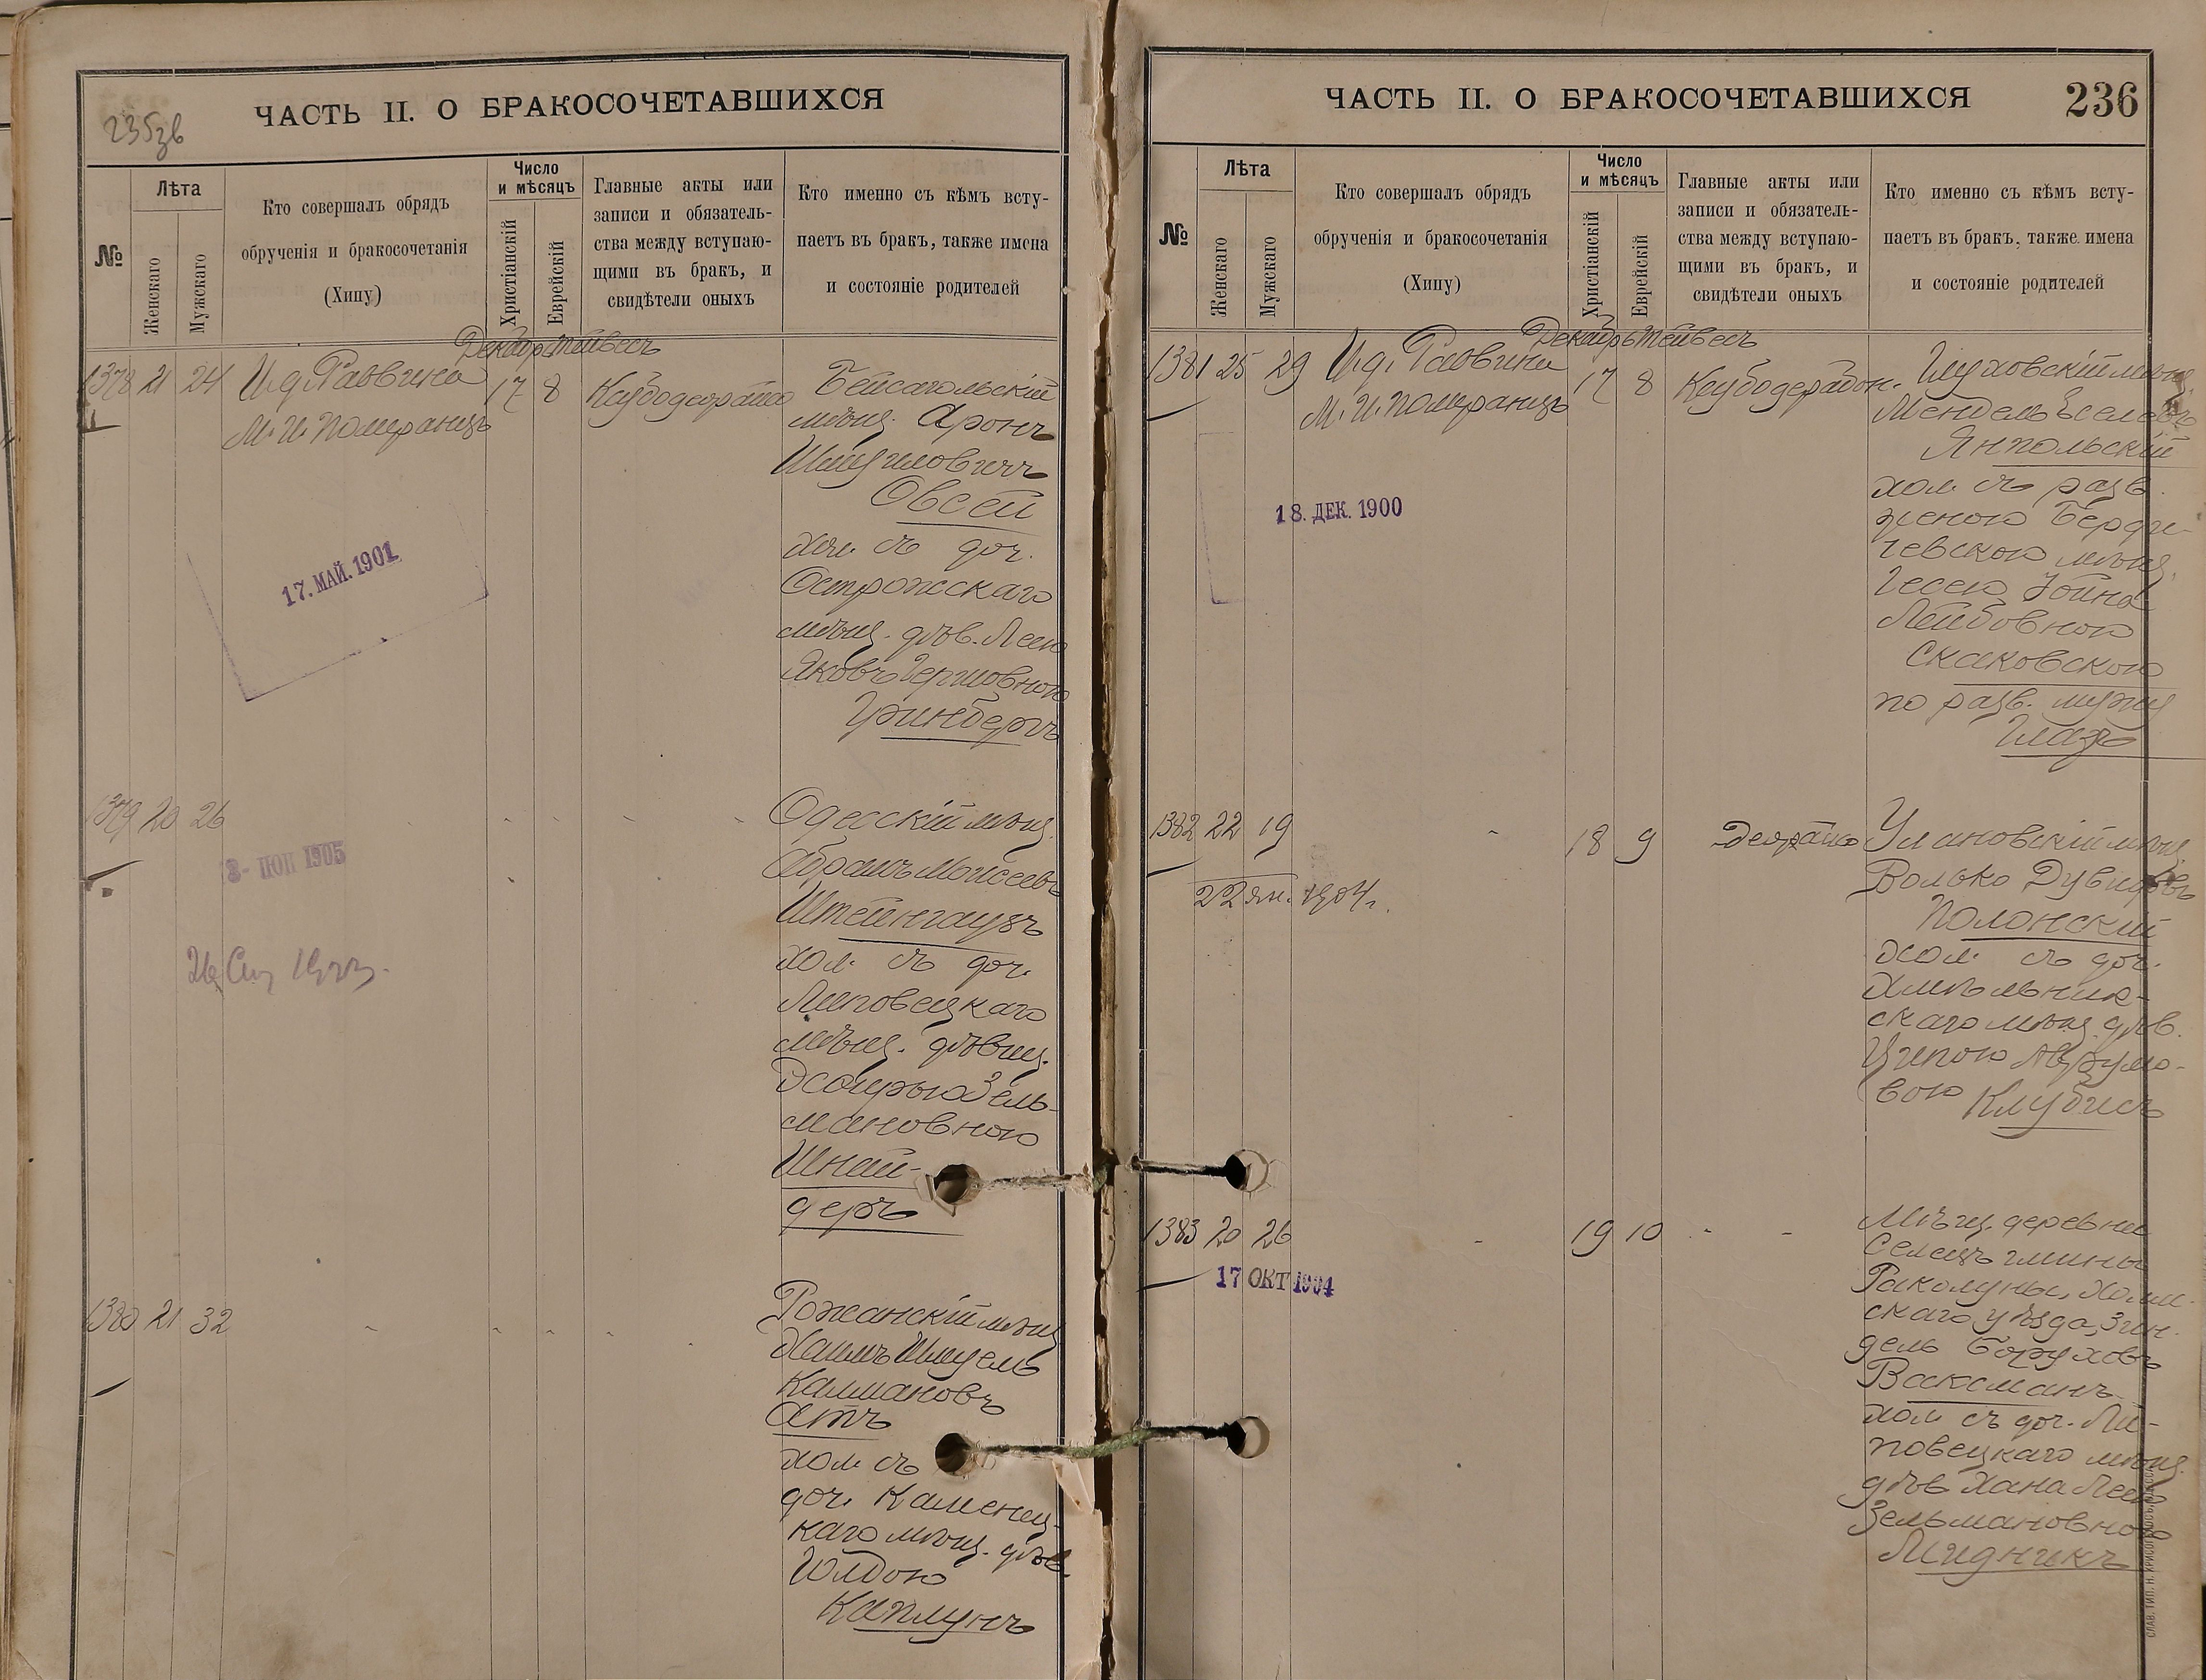 235зв
ЧАСТЬ II. О БРАКОСОЧЕТАВШИХСЯ
№
Лѣта
Женскаго
Мужскаго
Кто совершалъ обрядъ
обрученія и бракосочетанія
(Хипу)
Число
и мѣсяцъ
Христіанскій
Еврейскій
Главные акты или
записи и обязатель-
ства между вступаю-
щими въ бракъ, и
свидѣтели оныхъ
Кто именно съ кѣмъ всту-
паетъ въ бракъ, также имена
и состояніе родителей
Декабрь Тейвесъ
1378 21 24 И.д. Раввина 17 8
М. И. Померанцъ
Бейсагольскій
мѣщ. Аронъ
Шмуиловичъ
Овсей
хол. съ доч.
Острожскаго
мѣщ. дѣв. Леею
Яковъ Гершовною
Гринбергъ
17. МАЙ. 1901
1379 20 26
Одесскій мѣщ.
Абрамъ Моисеевъ
Штейнгаузъ
хол. съ доч.
Липовецкаго
мѣщ. дѣвиц.
Эсѳирью Зель-
мановною
Шнай-
деръ
1905
1380 21 32
Рожанскій мѣщ.
Хаимъ Шмуель
Калмановъ
Атъ
хол. съ
доч. Каменец-
каго мѣщ. дѣв.
Каплунъ
ЧАСТЬ II. О БРАКОСОЧЕТАВШИХСЯ
236
№
Лѣта
Женскаго
Мужскаго
Кто совершалъ обрядъ
обрученія и бракосочетанія
(Хипу)
Число
и мѣсяцъ
Христіанскій
Еврейскій
Главные акты или
записи и обязатель-
ства между вступаю-
щими въ бракъ, и
свидѣтели оныхъ
Кто именно съ кѣмъ всту-
паетъ въ бракъ, также имена
и состояніе родителей
Декабрь Тейвесъ
1381 25 29 И.д. Раввина 17 8
М. И. Померанцъ
Глуховскій мѣщ.
Мендель
Янпольскій
хол. съ разв.
женою Берди-
чевскою мѣщ.
Лейбовною
Скаковскою
по разв. мужу
Глазъ
18. ДЕК. 1900
1382 22 19 18 9
Улановскій мѣщ.
Волько Дувидовъ
Полонскій
хол. съ доч.
Хмѣльник-
скаго мѣщ. дѣв.
Ципою Аврумо-
вою Клубисъ
22 ян. 1904 г.
1383 20 26 19 10
Мѣщ. деревни
Селецъ гмины
Раколупы, Холм-
скаго уѣзда, Зин-
дель Боруховъ
Ваксманъ
хол. съ доч. Ли-
повецкаго мѣщ.
дѣв. Хана Леею
Зельмановною
Мидникъ
17 ОКТ 1904